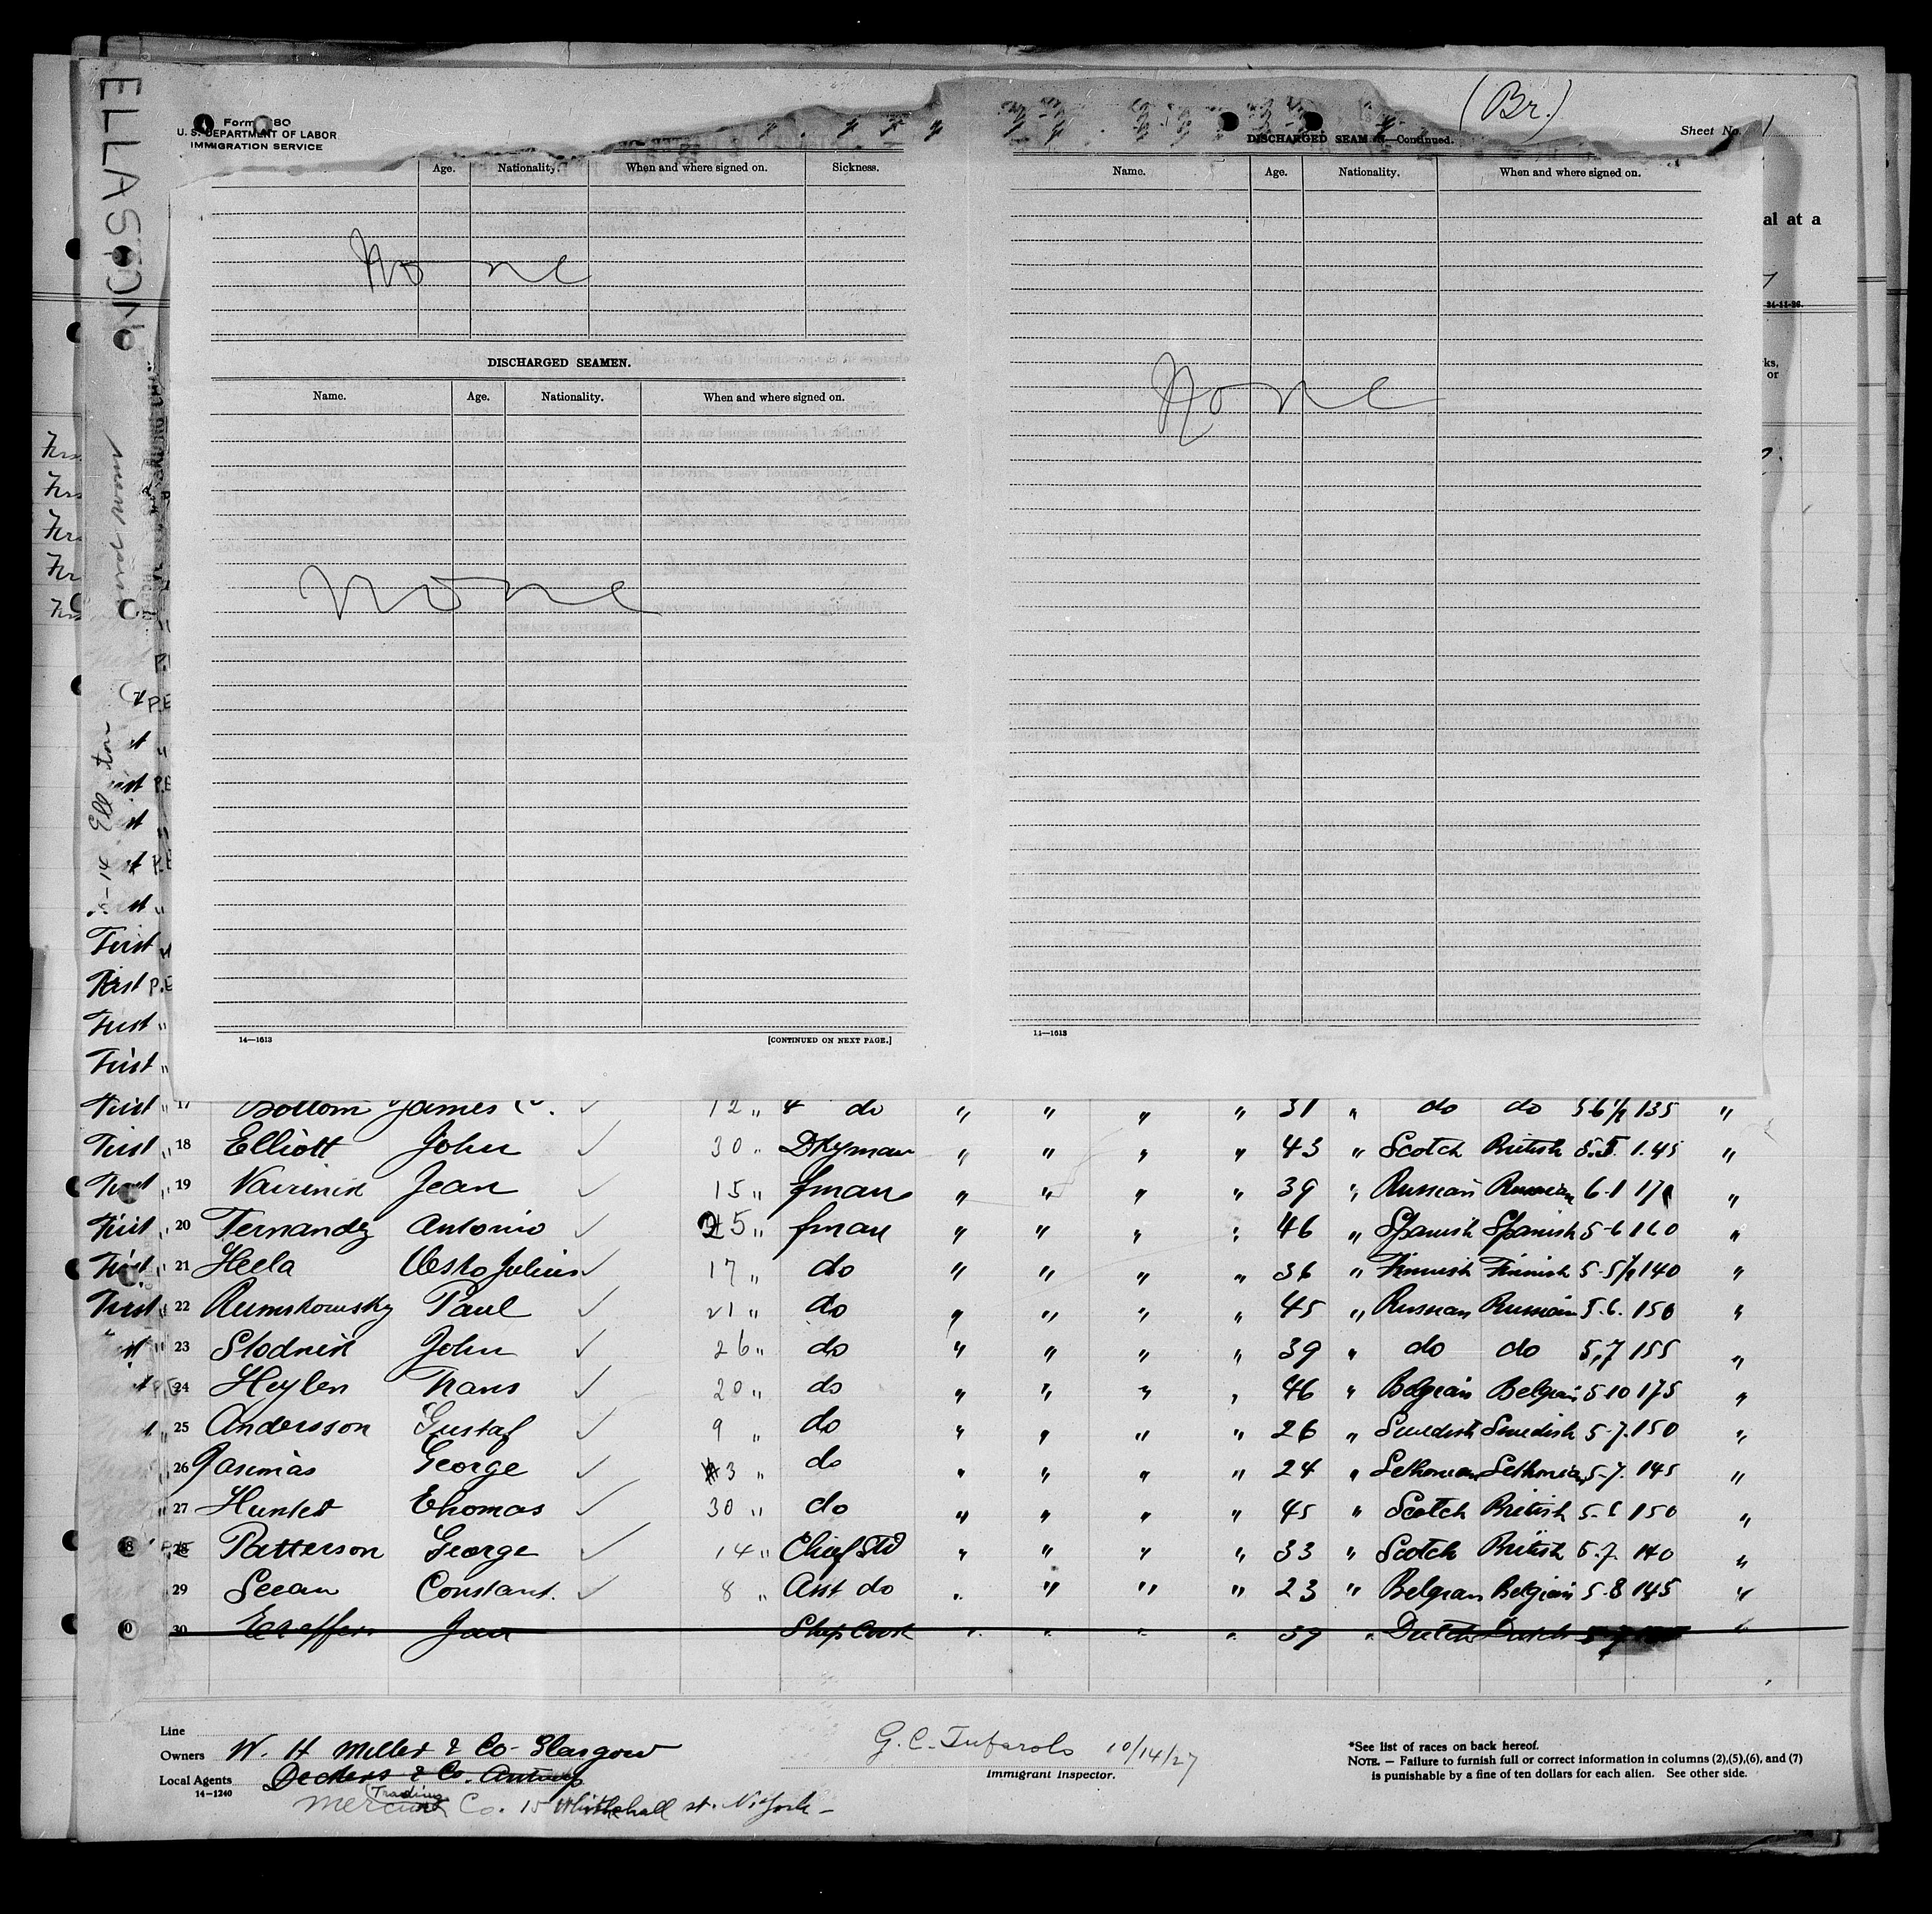 ELLASTON
Form 680
U. S. DEPARTMENT OF LABOR
IMMIGRATION SERVICE
(Br.)
Sheet No. 1
DISCHARGED SEAMEN—Continued.
Age. Nationality. When and where signed on. Sickness.
Name. Age. Nationality. When and where signed on.
al at a
24-11-26.
None
DISCHARGED SEAMEN.
ks,
or
Name. Age. Nationality. When and where signed on.
None
None
14—1613 [CONTINUED ON NEXT PAGE.]
14—1613
First " 17 Bottom James C. ✓ 12 " 4 do " " " " 31 " do do 5 6½ 135 "
First " 18 Elliott John ✓ 30 " Dkyman " " " " 43 " Scotch British 5.5. 1.45 "
First " 19 Vairinik Jean ✓ 15 " fman " " " " 39 " Russian Russian 6-1 170 "
First " 20 Fernandez Antonio ✓ 25 " fman " " " " 46 " Spanish Spanish 5-6 160 "
First " 21 Heela Uesko Julius ✓ 17 " do " " " " 36 " Finnish Finnish 5-5½ 140 "
First 22 Rumskowsky Paul ✓ 21 " do " " " " 45 " Russian Russian 5.6. 150 "
" 23 Slodnik John ✓ 26 " do " " " " 39 " do do 5,7 155 "
24 Heylen Frans ✓ 20 " do " " " " 46 " Belgian Belgian 5-10 175 "
" 25 Andersson Gustaf ✓ 9 " do " " " " 26 " Swedish Swedish 5-7. 150 "
" 26 Gasimas George ✓ 3 " do " " " " 24 " 5-7. 145 "
" 27 Hunter Thomas ✓ 30 " do " " " " 45 " Scotch British 5-6 150 "
28 Patterson George ✓ 14 " Chief Std " " " " 33 " Scotch British 5.7. 140 "
" 29 Seeau Constant. ✓ 8 " Asst do " " " " 23 " Belgian Belgian 5-8 145 "
30 Jan Ships Cook " " " " 39 " Dutch Dutch "
Line
Owners W. H Miller & Co- Glasgow
Local Agents Deckers & Co. Antwerp
14-1240
Trading
Co. 15 Whitehall st. N. York-
G. C. Tufarolo 10/14/27
Immigrant Inspector.
*See list of races on back hereof.
NOTE. — Failure to furnish full or correct information in columns (2),(5),(6), and (7)
is punishable by a fine of ten dollars for each alien. See other side.